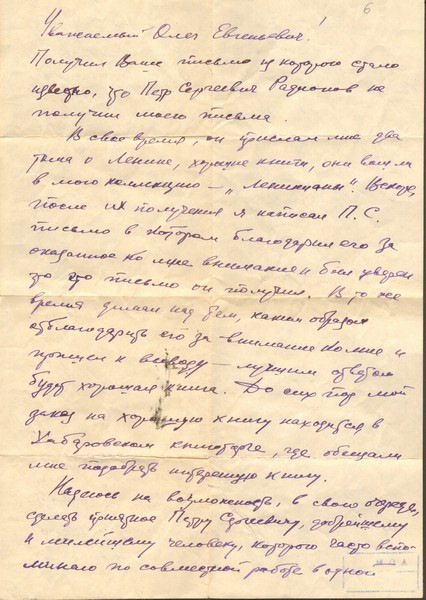 6
Уважаемый Олег Евгеньевич!
Получил Ваше письмо из которого стало
известно, что Петр Сергеевич Радионов не
получил моего письма.
В свое время, он прислал мне два
тома о Ленине, хорошие книги, они вошли
в мою коллекцию — „Ленинианы". Вскоре,
после их получения я написал П. С.
письмо в котором благодарил его за
оказанное ко мне внимание и был уверен
что это письмо он получил. В то же
время думал над тем, каким образом
отблагодарить его за внимание ко мне и
пришел к выводу — лучшим ответом
будет хорошая книга. До сих пор мой
заказ на хорошую книгу находится в
Хабаровском книготорге, где обещали
мне подобрать интересную книгу.
Надеюсь на возможность, в свою очередь,
сделать приятное Петру Сергеевичу, добрейшему
и милейшему человеку, которого часто вспо-
минаю по совместной работе в одной